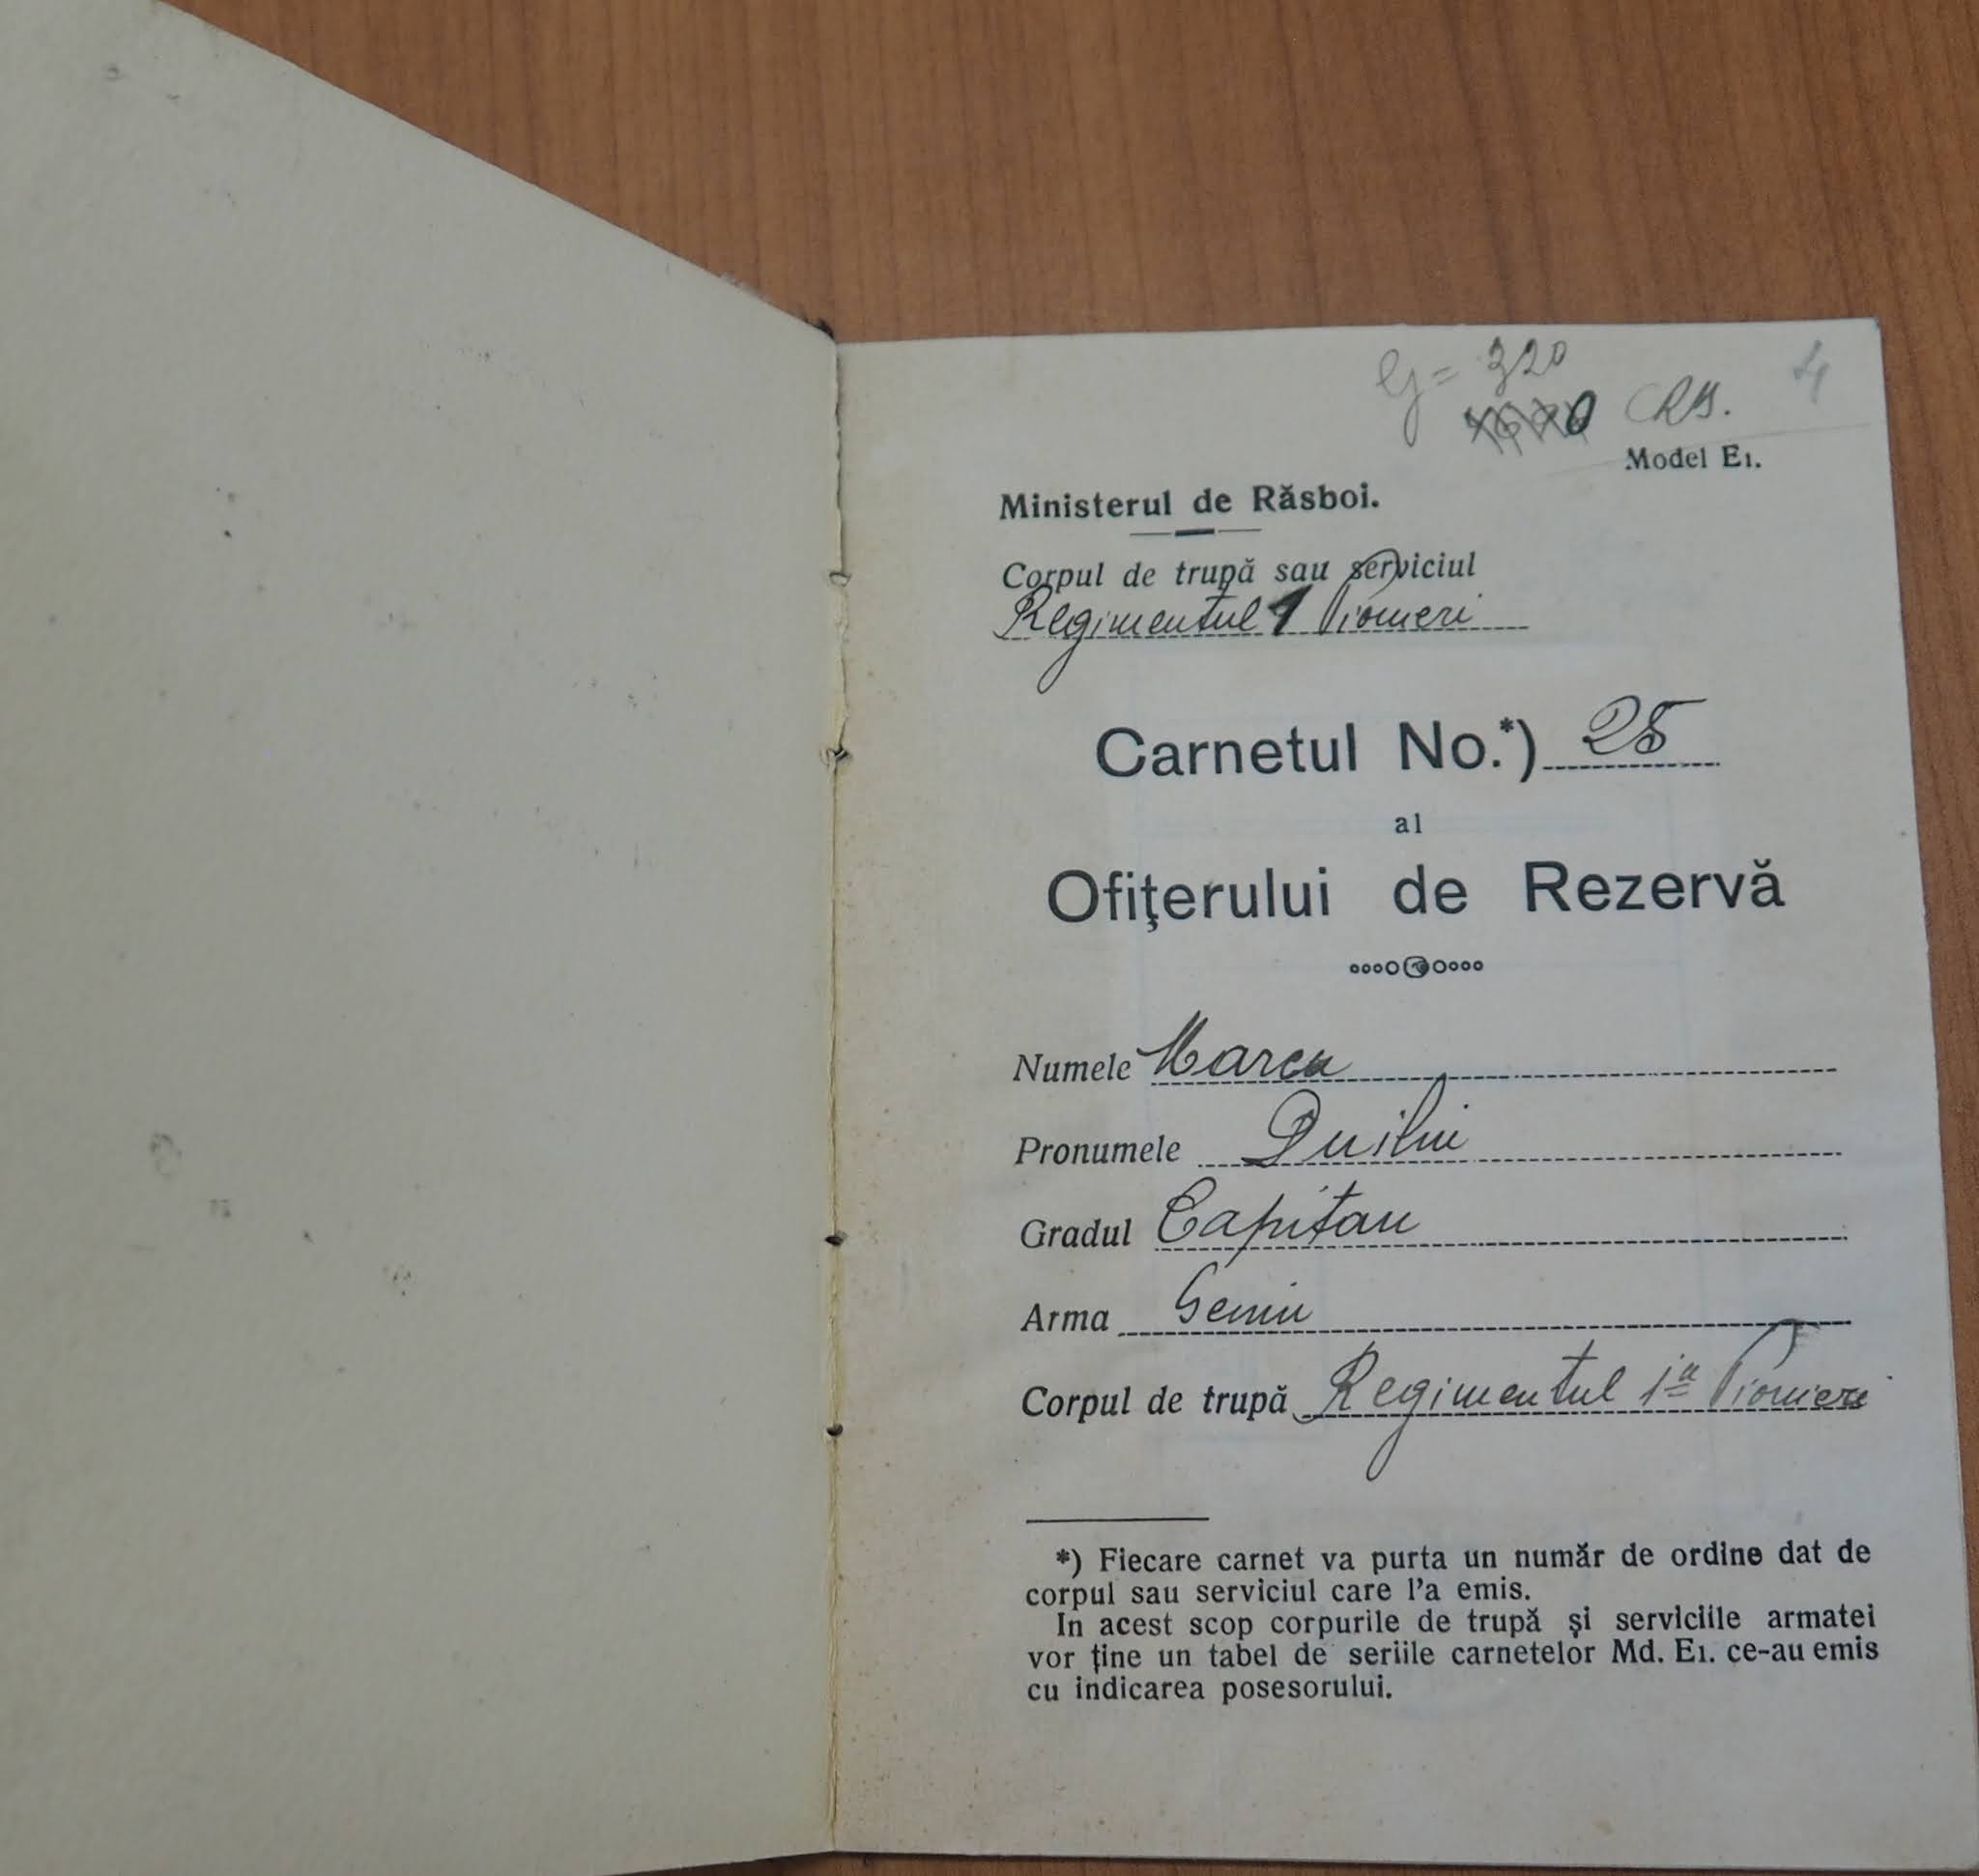 G = 320
RB.
4
Model E1.
Ministerul de Răsboi.
Corpul de trupă sau serviciul
Regimentul 1 Pionieri
Carnetul No.*) 25
al
Ofiţerului de Rezervă
Numele Marcu
Pronumele Duiliu
Gradul Capitan
Arma Geniu
Corpul de trupă Regimentul 1a Pionieri
*) Fiecare carnet va purta un număr de ordine dat de
corpul sau serviciul care l'a emis.
In acest scop corpurile de trupă şi serviciile armatei
vor ţine un tabel de seriile carnetelor Md. E1. ce-au emis
cu indicarea posesorului.